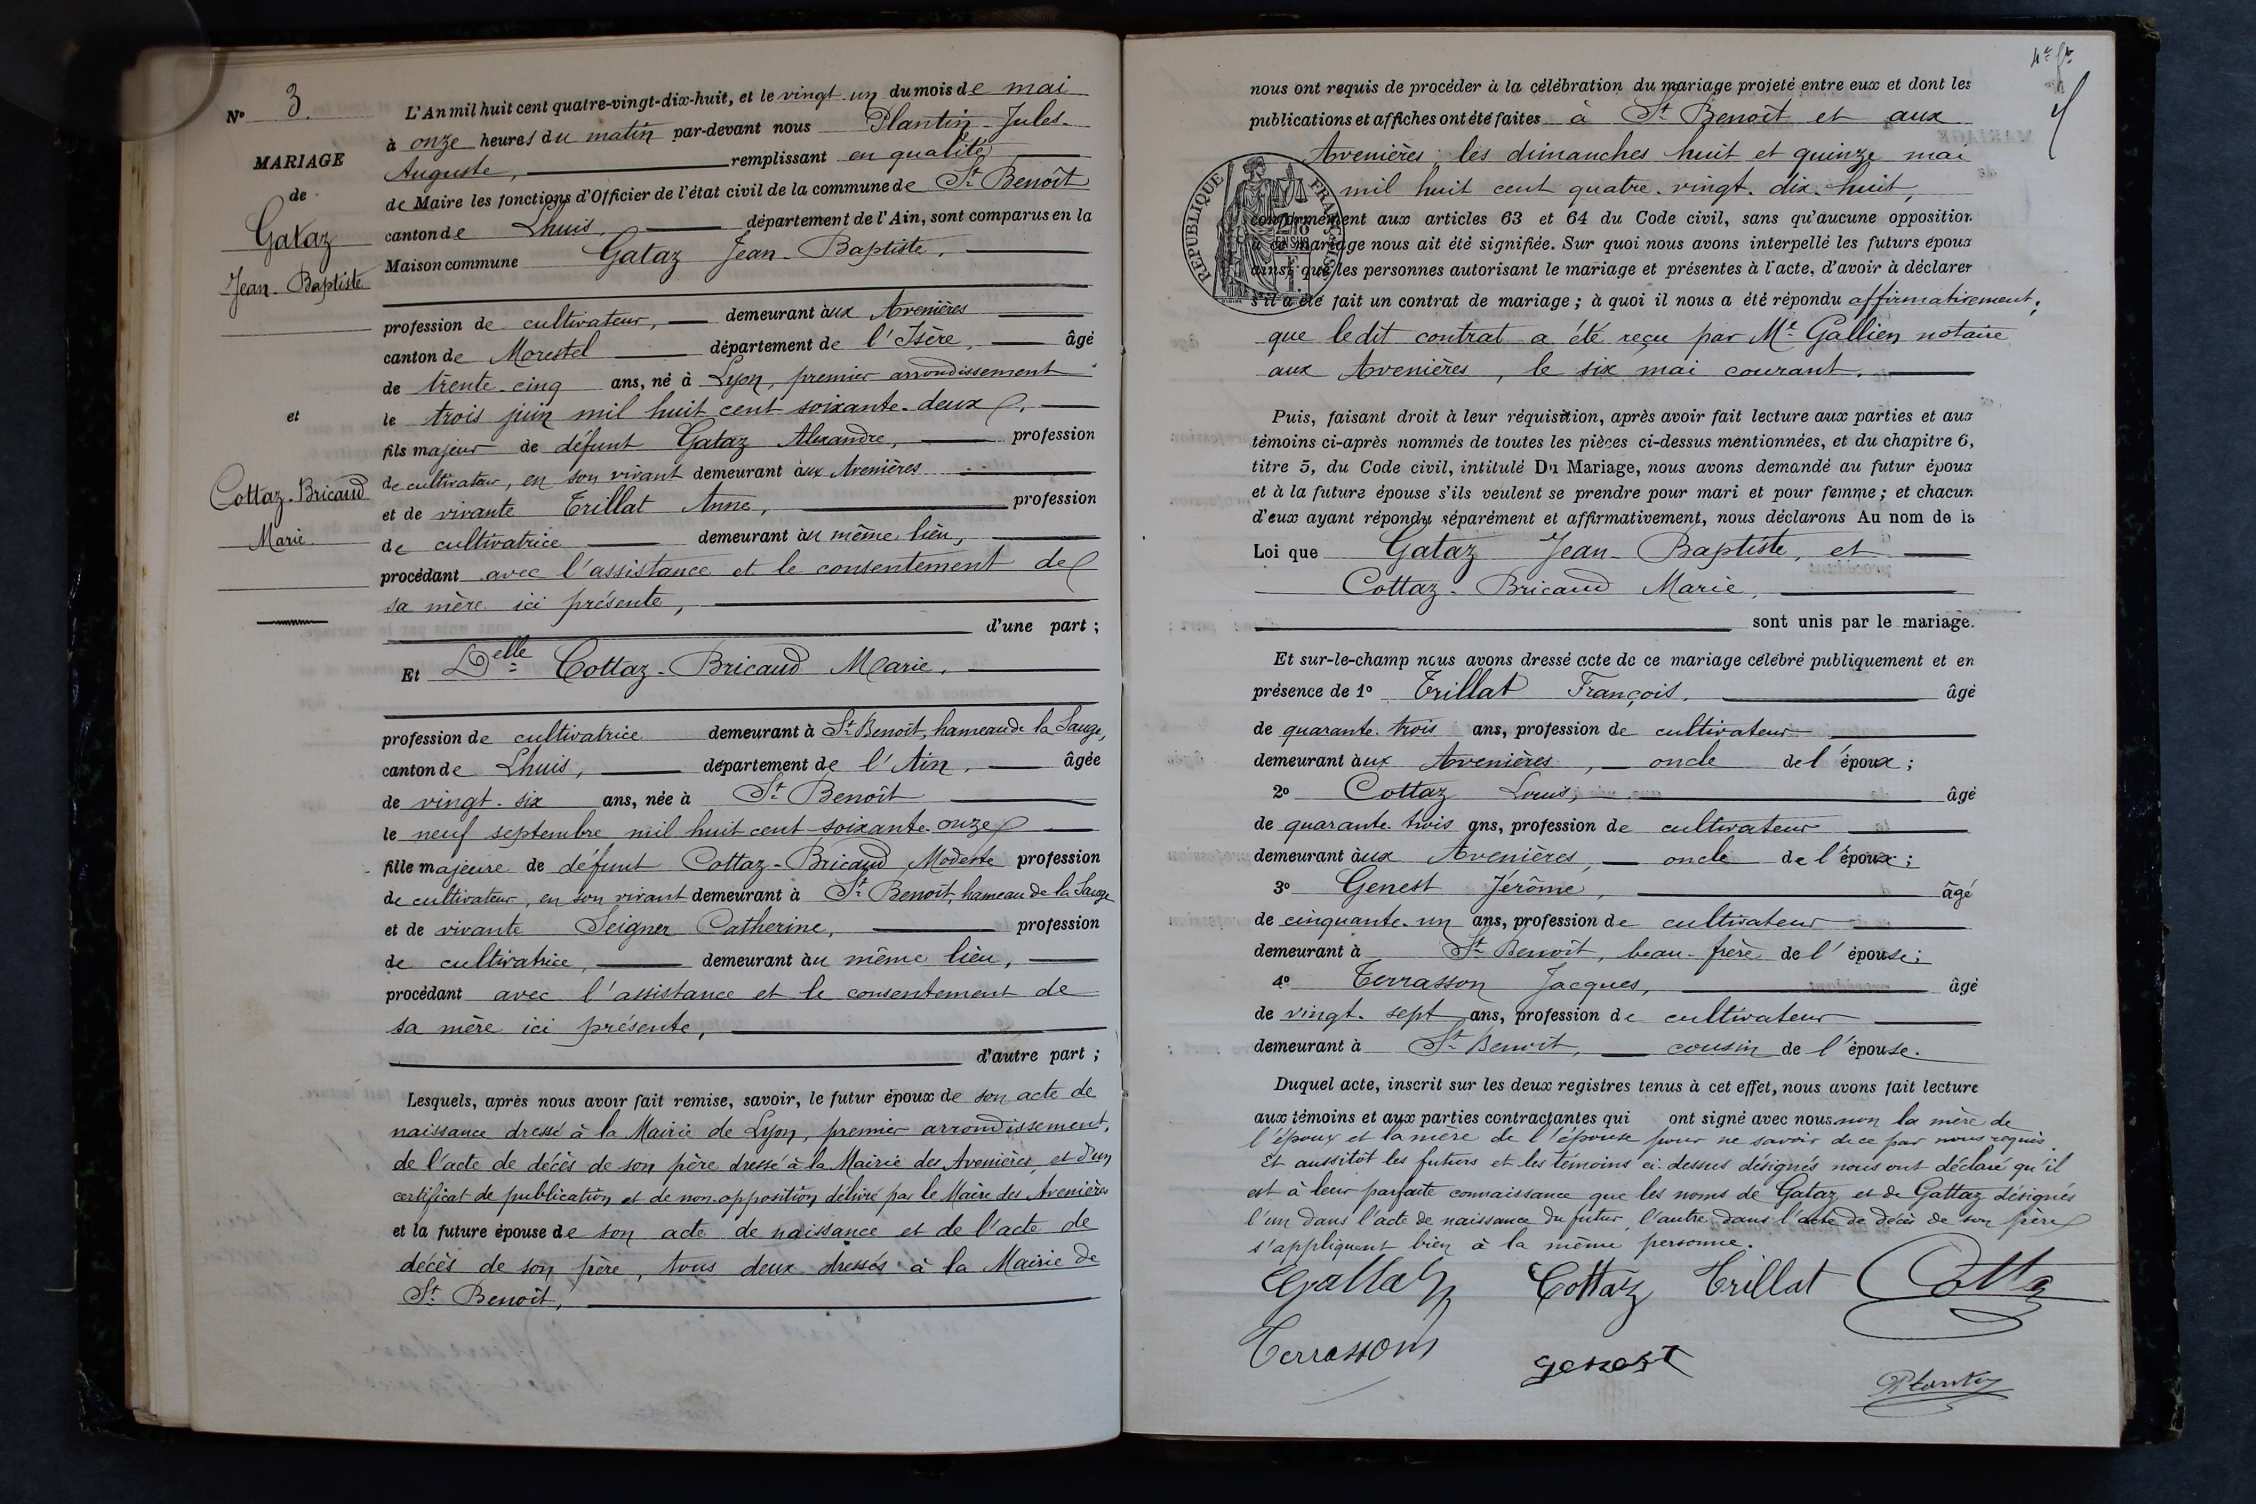 N° 3.
MARIAGE
de
Gataz
Jean-Baptiste
et
Cottaz-Bricaud
Marie
L'An mil huit cent quatre-vingt-dix-huit, et le vingt un du mois de mai
à onze heures du matin par-devant nous Plantin Jules
Auguste, remplissant en qualité
de Maire les fonctions d'Officier de l'état civil de la commune de St Benoît
canton de Lhuis, département de l'Ain, sont comparus en la
Maison commune Gataz Jean-Baptiste,
profession de cultivateur, demeurant aux Avenières
canton de Morestel département de l'Isère, âgé
de trente-cinq ans, né à Lyon, premier arrondissement
le trois juin mil huit cent soixante-deux,
fils majeur de défunt Gataz Alexandre, profession
de cultivateur, en son vivant demeurant aux Avenières
et de vivante Trillat Anne, profession
de cultivatrice demeurant au même lieu,
procédant avec l'assistance et le consentement de
sa mère ici présente,
d'une part ;
Et Delle Cottaz-Bricaud Marie,
profession de cultivatrice demeurant à St Benoît, hameau de la Sauge,
canton de Lhuis, département de l'Ain, âgée
de vingt-six ans, née à St Benoît
le neuf septembre mil huit cent soixante-onze
fille majeure de défunt Cottaz-Bricaud Modeste profession
de cultivateur, en son vivant demeurant à St Benoît, hameau de la Sauge
et de vivante Seigner Catherine, profession
de cultivatrice, demeurant au même lieu,
procédant avec l'assistance et le consentement de
sa mère ici présente,
d'autre part ;
Lesquels, après nous avoir fait remise, savoir, le futur époux de son acte de
naissance dressé à la Mairie de Lyon, premier arrondissement,
de l'acte de décès de son père dressé à la Mairie des Avenières, et d'un
certificat de publication et de non-opposition délivré par le Maire des Avenières
et la future épouse de son acte de naissance et de l'acte de
décès de son père, tous deux dressés à la Mairie de
St Benoît,
nous ont requis de procéder à la célébration du mariage projeté entre eux et dont les
publications et affiches ont été faites à St Benoît et aux
Avenières, les dimanches huit et quinze mai
mil huit cent quatre-vingt-dix-huit,
RÉPUBLIQUE FRANÇAISE
conformément aux articles 63 et 64 du Code civil, sans qu'aucune opposition
à ce mariage nous ait été signifiée. Sur quoi nous avons interpellé les futurs époux
ainsi que les personnes autorisant le mariage et présentes à l'acte, d'avoir à déclarer
s'il a été fait un contrat de mariage ; à quoi il nous a été répondu affirmativement,
que le dit contrat a été reçu par Me Gallien notaire
aux Avenières, le six mai courant.
Puis, faisant droit à leur réquisition, après avoir fait lecture aux parties et aux
témoins ci-après nommés de toutes les pièces ci-dessus mentionnées, et du chapitre 6,
titre 5, du Code civil, intitulé Du Mariage, nous avons demandé au futur époux
et à la future épouse s'ils veulent se prendre pour mari et pour femme ; et chacun
d'eux ayant répondu séparément et affirmativement, nous déclarons Au nom de la
Loi que Gataz Jean-Baptiste, et
Cottaz-Bricaud Marie,
sont unis par le mariage.
Et sur-le-champ nous avons dressé acte de ce mariage célébré publiquement et en
présence de 1° Trillat François, âgé
de quarante-trois ans, profession de cultivateur
demeurant aux Avenières, oncle de l'époux ;
2° Cottaz Louis, âgé
de quarante-trois ans, profession de cultivateur
demeurant aux Avenières, oncle de l'époux ;
3° Genest Jérôme, âgé
de cinquante-un ans, profession de cultivateur
demeurant à St Benoît, beau-frère de l'épouse ;
4° Terrasson Jacques, âgé
de vingt-sept ans, profession de cultivateur
demeurant à St Benoît, cousin de l'épouse.
Duquel acte, inscrit sur les deux registres tenus à cet effet, nous avons fait lecture
aux témoins et aux parties contractantes qui ont signé avec nous non la mère de
l'époux et la mère de l'épouse pour ne savoir de ce par nous requis.
Et aussitôt les futurs et les témoins ci-dessus désignés nous ont déclaré qu'il
est à leur parfaite connaissance que les noms de Gataz et de Gattaz désignés
l'un dans l'acte de naissance du futur, l'autre dans l'acte de décès de son père
s'appliquent bien à la même personne.
Gattaz Cottaz Trillat Cottaz
Terrasson Genest
Plantin